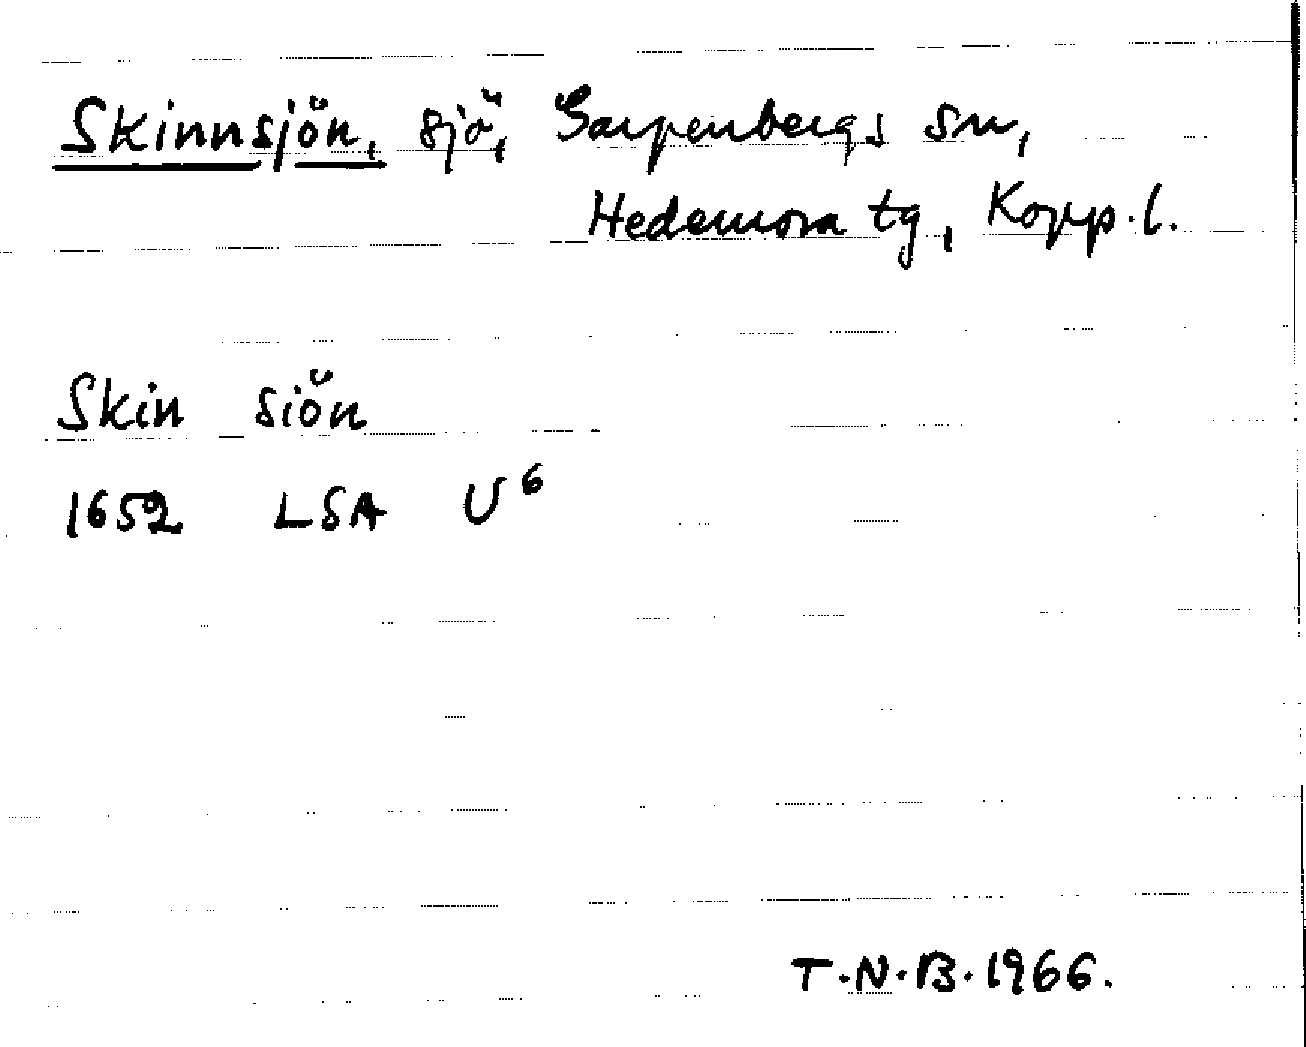 Skinnsjön, sjö, Garpenbergs sn,
Hedemora tg, Kopp.l.
Skin siön
1652 LSA U⁶
T.N.B.1966.